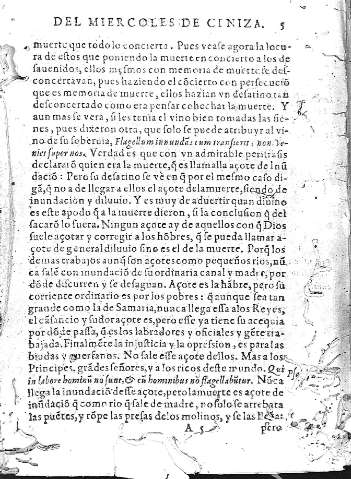 DEL MIERCOLES DE CINIZA. 5
muerte que todo lo concierta. Pues vease agora la locu-
ra de estos que poniendo la muerte en concierto a los de
sauenidos, ellos mismos con memoria de muerte se des-
concertauan, pues haziendo el cõcierto con persecuciõ
que es memoria de muerte, ellos hazian vn desatino tan
desconcertado como era pensar cohechar la muerte. Y
aun mas se vera, si les tenia el vino bien tomadas las sie-
nes, pues dixeron otra, que solo se puede atribuyr al vi-
no de su soberuia, Flagellum inundãs cum transierit, non ve-
niet super nos. Verdad es que con vn admirable
declararõ quien era la muerte, q̃ es llamalla açote de Inũ
dació : Pero su desatino se vè en q̃ por el mesmo caso di-
gã, q̃ no a de llegar a ellos el açote de la muerte, siendo de
inundaciõn y diluuio. Y es muy de aduertir quan diuino
es este apodo q̃ a la muerte dieron, si la conclusion q̃ del
sacarõ lo fuera. Ningun açote ay de aquellos con q̃ Dios
suele açotar y corregir a los hõbres, q̃ se pueda llamar a-
çote de general diluuio sino es el de la muerte. Porq̃ los
demas trabajos aunq̃ son açotes como pequeños rios, nũ
ca salẽ con inundaciõ de su ordinaria canal y madre, por
dõde discurren y se desaguan. Açote es la hãbre, pero su
corriente ordinario es por los pobres : q̃ aunque sea tan
grande como la de Samaria, nunca llega essa a los Reyes,
el cãsancio y sudor açote es, pero esse ya tiene su acequia
por dõde passa, q̃ es los labradores y oficiales y gẽte tra-
bajada. Finalmẽte la injusticia y la opresion, es para las
biudas y guerfanos. No sale esse açote dellos. Mas a los
Principes, grãdes señores, y a los ricos deste mundo. Qui
in labore hominũ nõ sunt, & cũ hominibus nõ flagellabũtur. Nũca
llega la inundaciõ desse açote, pero la muerte es açote de
inũdaciõ q̃ como rio q̃ sale de madre, no solo se arrebata
las puẽtes, y rõpe las presas de los molinos, y se las lleua,
A 5 pero